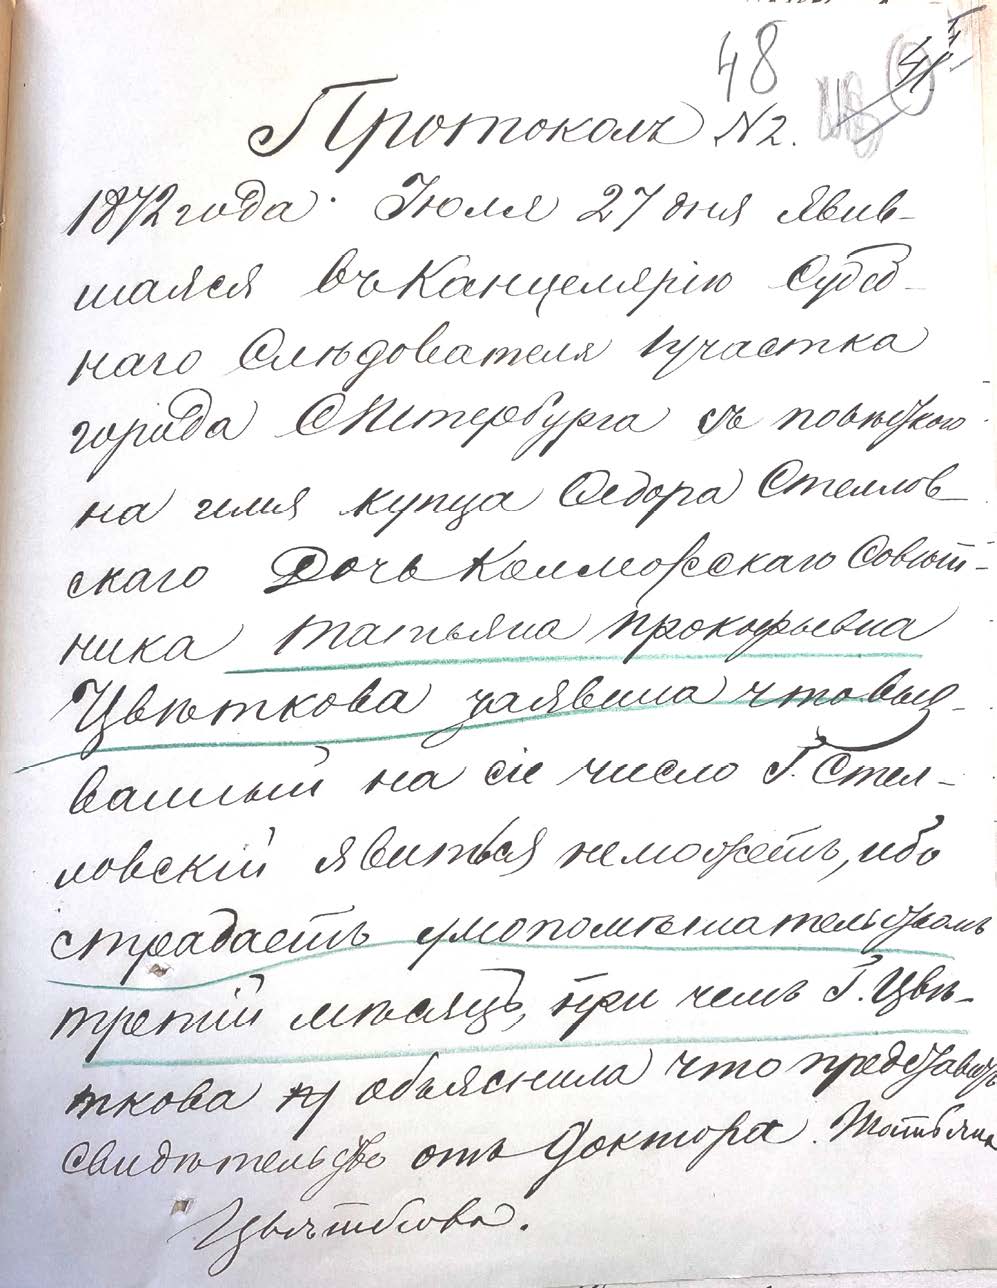 48
41
Протоколъ N2.
1872 года. Іюля 27 дня явив-
шаяся въ Канцелярію Судеб-
наго Слѣдователя 1 участка
города СПетербурга съ повѣсткою
на имя купца Ѳедора Стеллов-
скаго Дочь Коллежскаго Совѣт-
ника Татьяна Прокофьевна
Цвѣткова заявила что выз-
ванный на сіе число Г. Стел-
ловскій явиться неможетъ, ибо
страдаетъ умопомѣшательствомъ
третій мѣсяцъ, при чемъ Г. Цвѣ-
ткова объяснила что представитъ
свидѣтельство отъ Доктора. Татьяна
Цвѣткова.